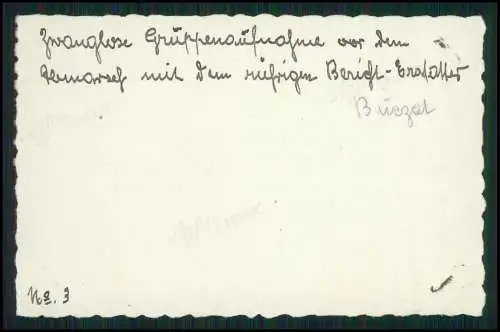 Zwanglose Gruppenaufnahme vor dem
Abmarsch mit dem rührigen Bericht-Erstatter
Buczat
No. 3